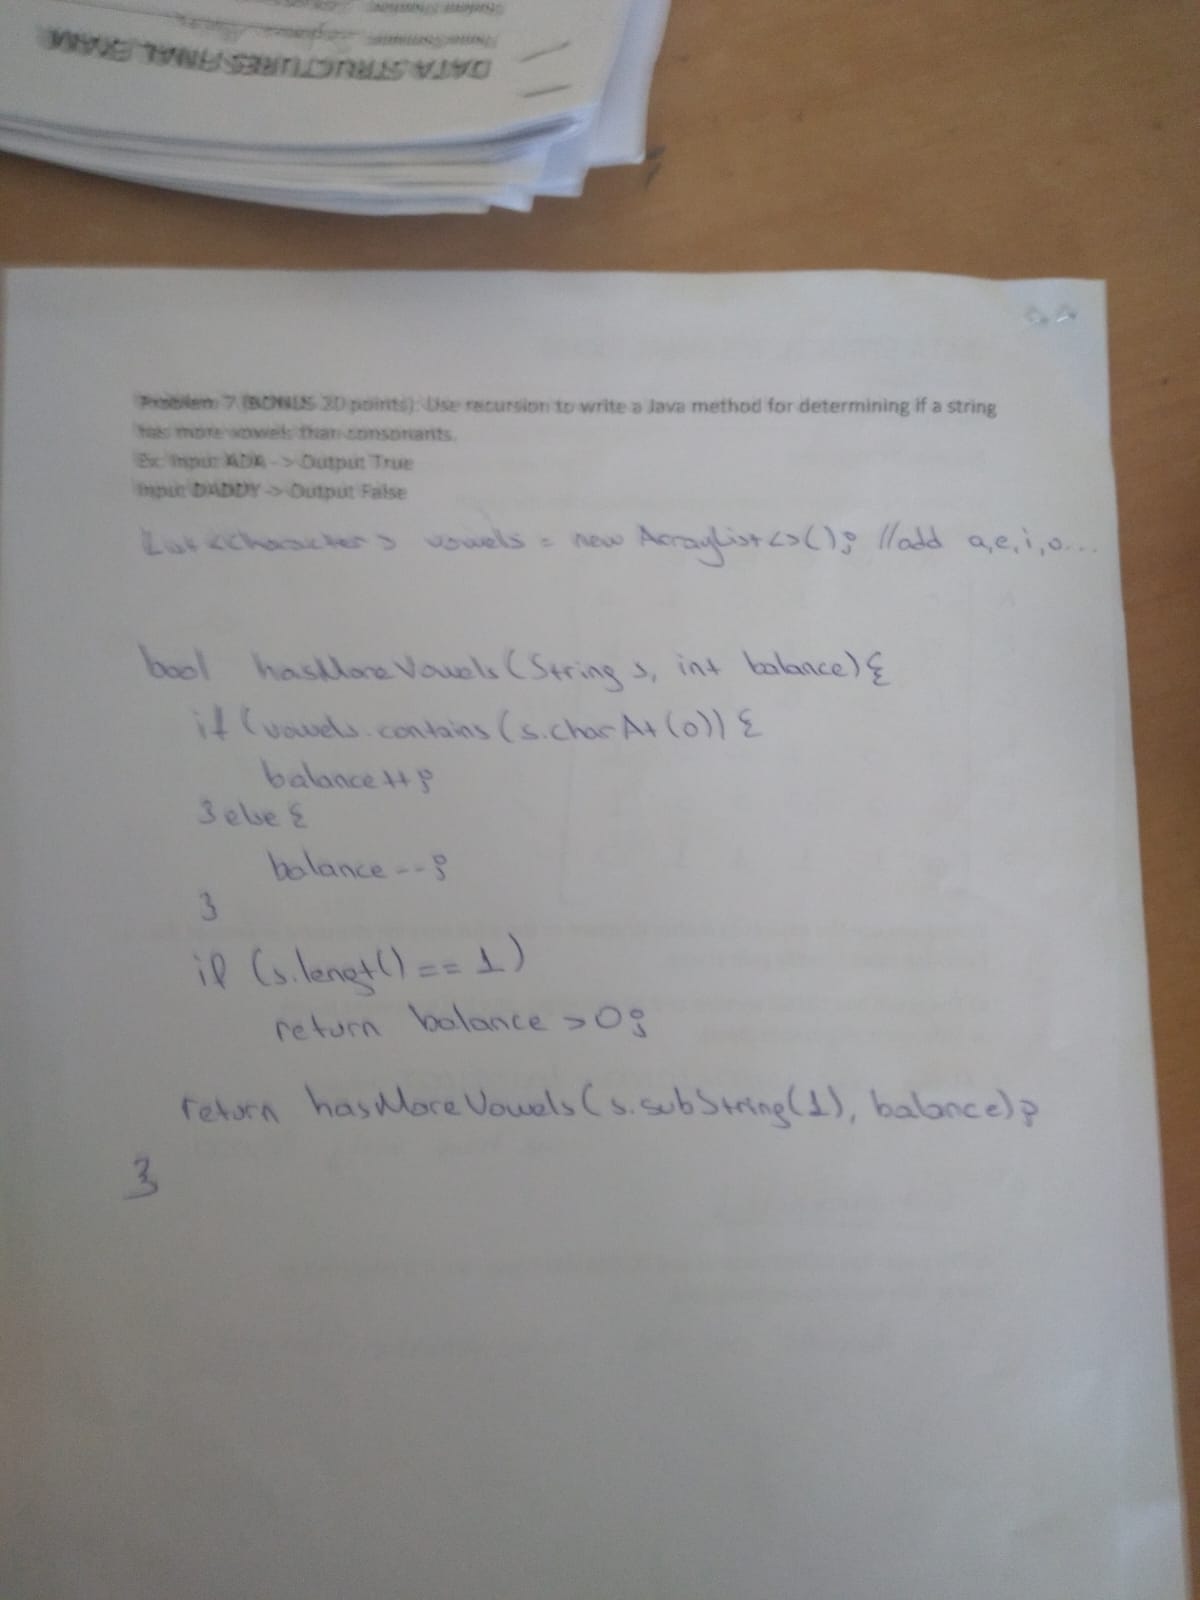 DATA STRUCTURES FINAL EXAM
Problem 7 (BONUS 20 points): Use recursion to write a Java method for determining if a string
has more vowels than consonants.
Ex: Input ADA -> Output True
Input DADDY -> Output False
List<Character> vowels = new ArrayList<>(); //add a,e,i,o...
bool hasMoreVowels(String s, int balance){
if(vowels.contains(s.charAt(0)){
balance++;
}else{
balance--;
}
if (s.lengt() == 1)
return balance >0;
return hasMoreVowels(s.subString(1), balance);
}